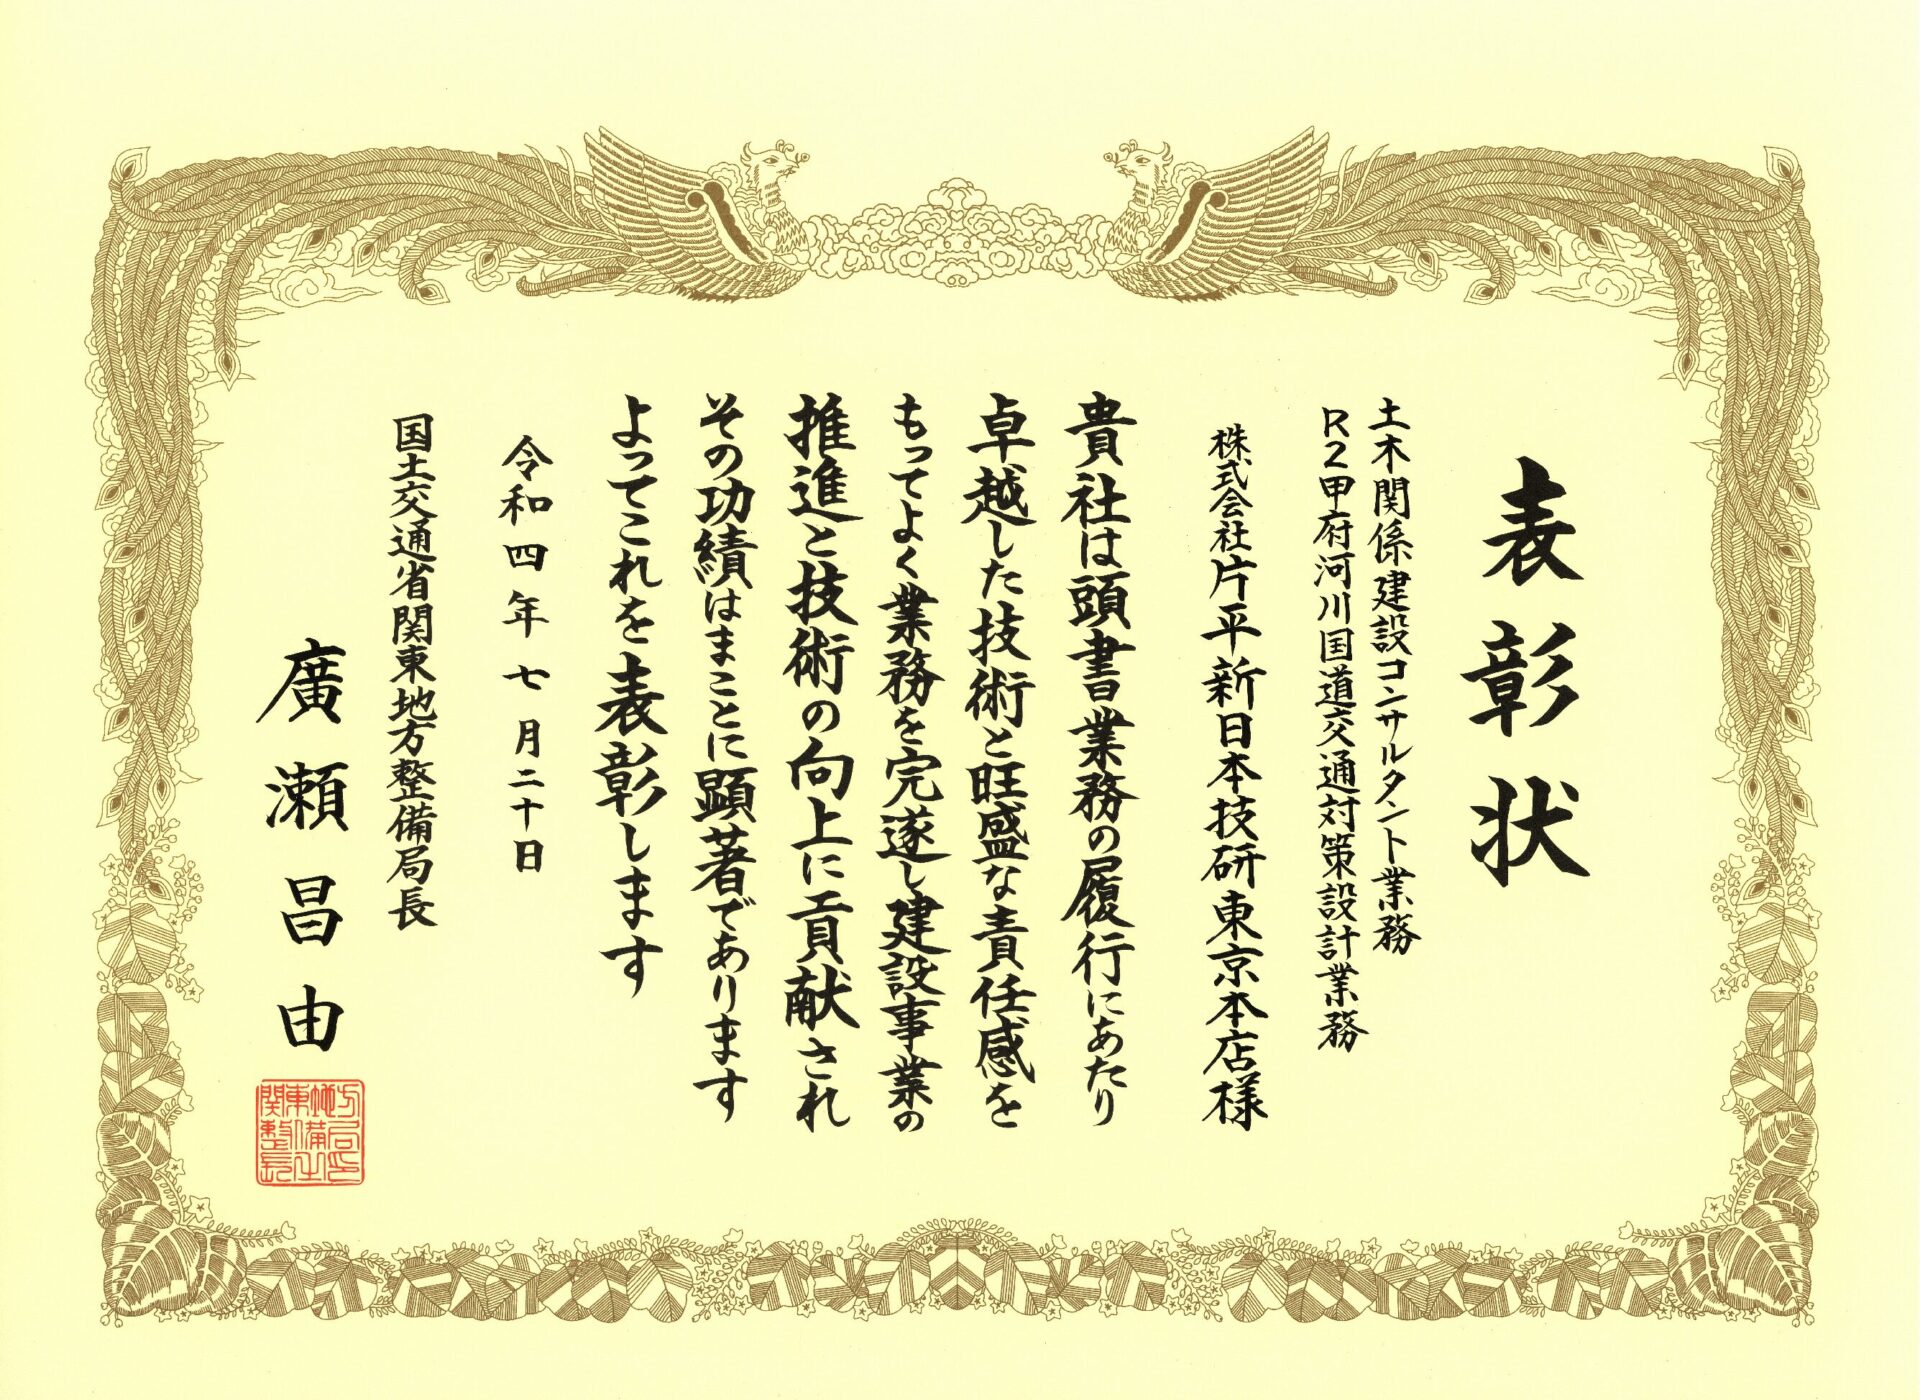 表彰状
土木関係建設コンサルタント業務
R2甲府河川国道交通対策設計業務
株式会社片平新日本技研東京本店様
貴社は頭書業務の履行にあたり
卓越した技術と旺盛な責任感を
もってよく業務を完遂し建設事業の
推進と技術の向上に貢献され
その功績はまことに顕著であります
よってこれを表彰します
令和四年七月二十日
国土交通省関東地方整備局長
廣瀬昌由